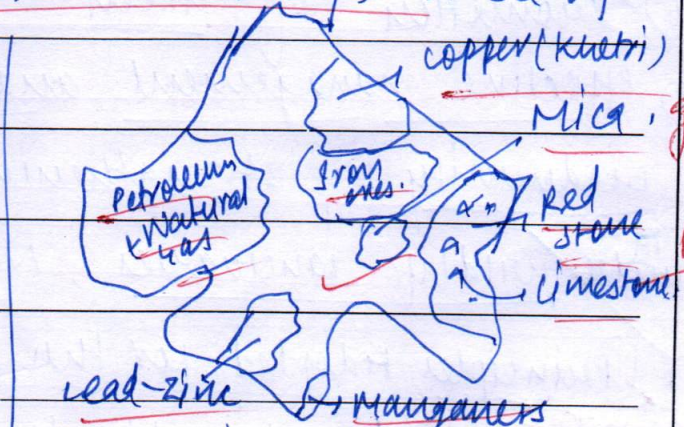 copper (Khetri)
Mica.
Petroleum
& Natural
Gas
Iron
ores.
Red
stone
Limestone
Lead-zinc
Manganers